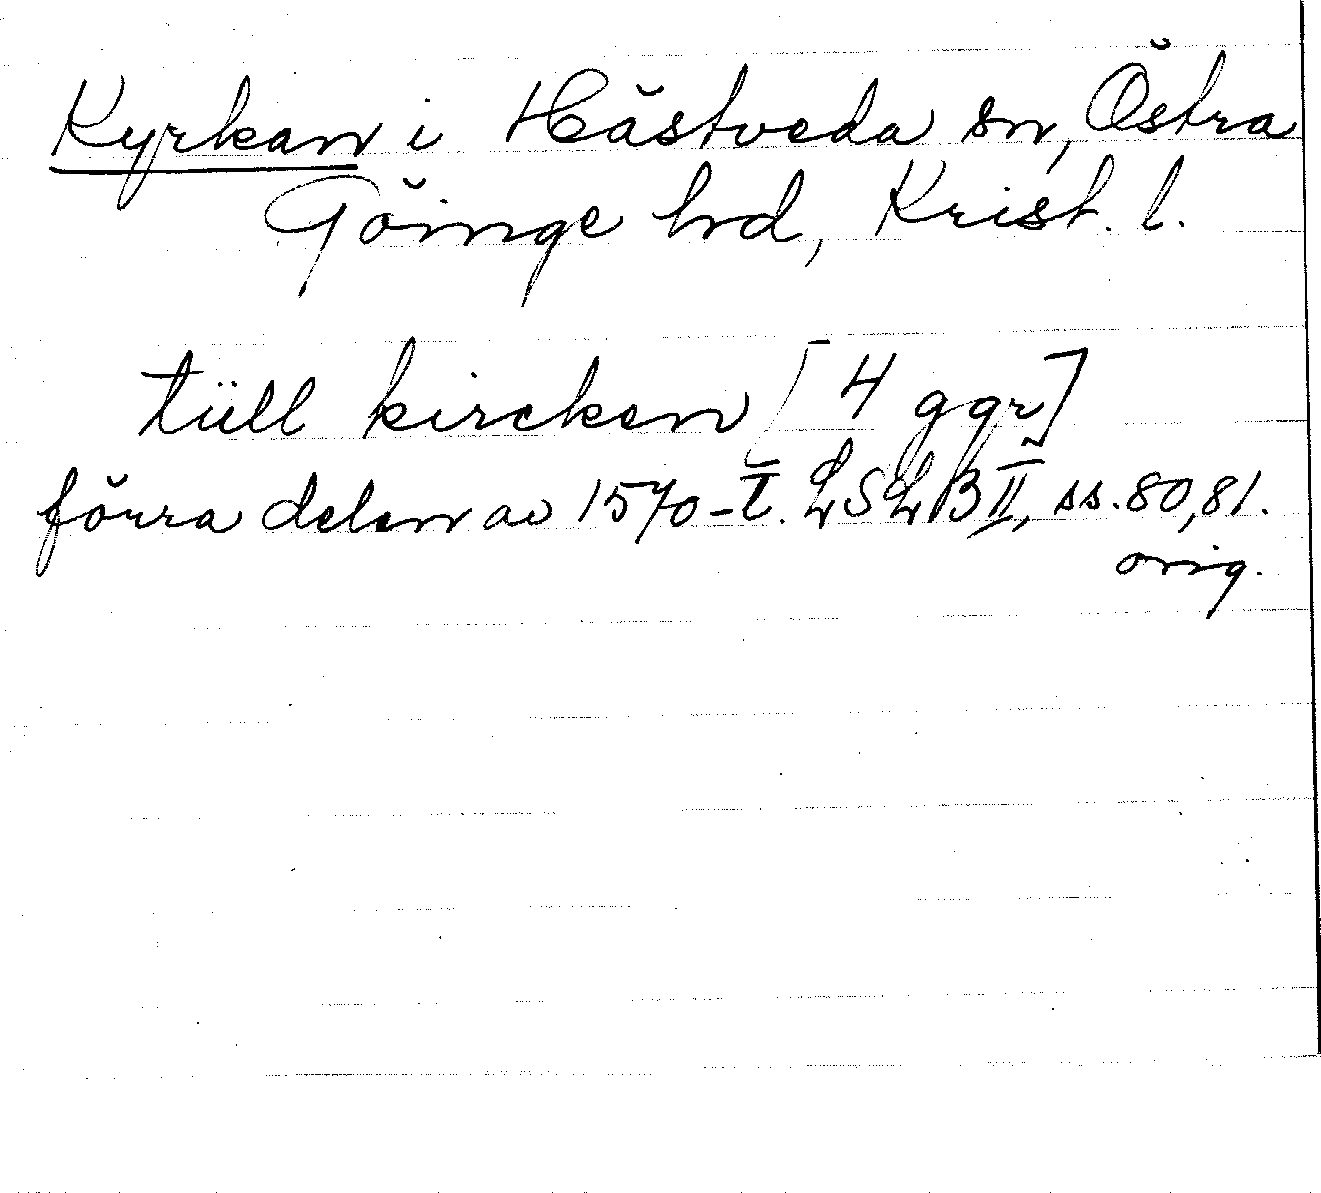 Kyrkan i Hästveda sn, Östra
Göinge hd, Krist. l.
tüll kircken [4 ggr]
förra delen av 1570-t. LSLB II, ss. 80, 81.
orig.